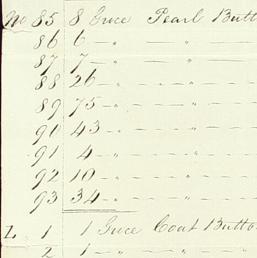 No 85 8 Groce Pearl Butt
86 6 — " — " —
87 7 — " — " —
88 26 — " — " —
89 75 — " — " —
90 43 — " — " —
91 4 — " — " —
92 10 — " — " —
93 34 — " — " —
L. 1 1 Groce Coat Butto
2 1 — " — " — "